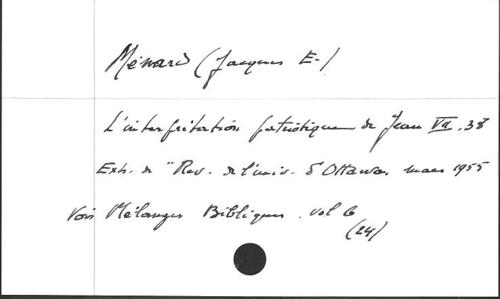 Ménard (Jacques E.)
L'interprétation patristique de Jean VII, 38
Ext. de "Rev. de l'univ. d'Ottawa, mars 1955
Voir Mélanges Bibliques. vol 6
(24)